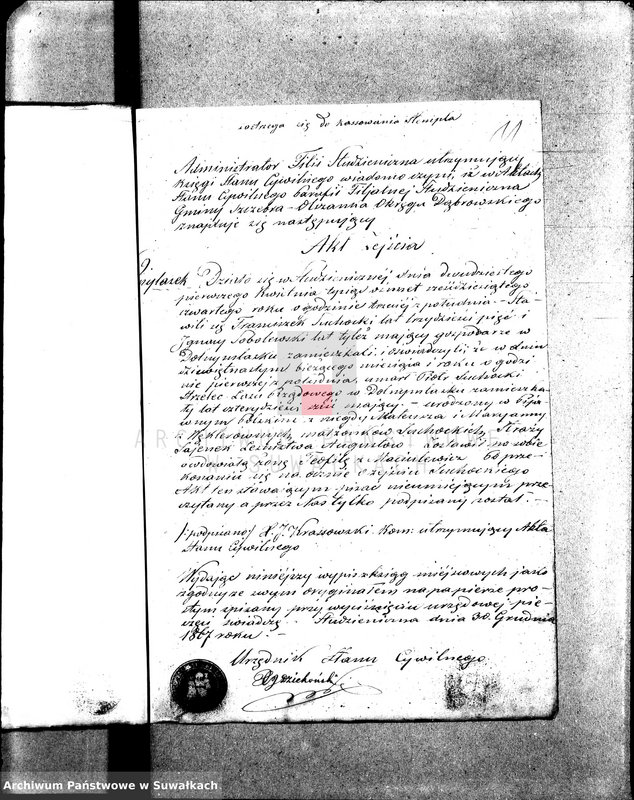 11
Administrator Filii Studzieniczna utrzymujący
Księgi Stanu Cywilnego wiadomo czyni, iż w Aktach
Stanu Cywilnego Parafii Filjalnej Studzieniczna
Gminy Szczebra-Olszanka Okręgu Dąbrowskiego
znajduje się następujący
Akt Zejścia
Działo się w Studzienicznej dnia dwudziestego
pierwszego Kwietnia tysiąc ośmset sześćdziesiątego
czwartego roku o godzinie trzeciej z południa – Sta-
wili się Franciszek Suchocki lat trzydzieści pięć i
Ignacy Sobolewski lat tyleż mający gospodarze w
zamieszkali, i oświadczyli że w dniu
dziewiętnastym bieżącego miesiąca i roku o godzi
nie pierwszej z południa, umarł Piotr Suchocki
Strzelec Lasu Rządowego w zamieszka
ły lat czterdzieści sześć mający – urodzony w
z niegdy Mateusza i Maryanny
małżonków Suchockich, Straży
Leśnictwa Augustów. Zostawił po sobie
owdowiałą żonę Teofilę z Maciulewicz. Po prze-
konaniu się naocznie o zejściu Suchockiego
Akt ten stawającym pisać nieumiejącym prze-
czytany a przez Nas tylko podpisany został. –
/podpisano/ X. J. Krassowski Kom: utrzymujący Akta
Stanu Cywilnego
Wydając niniejszy wypis z ksiąg miejscowych jako
zgodny ze swym oryginałem na papierze pro-
stym spisany przy wyciśnięciu urzędowej pie-
częci świadczę. – Studzieniczna dnia 30. Grudnia
1867 roku. –
Urzędnik Stanu Cywilnego
Archiwum Państwowe w Suwałkach